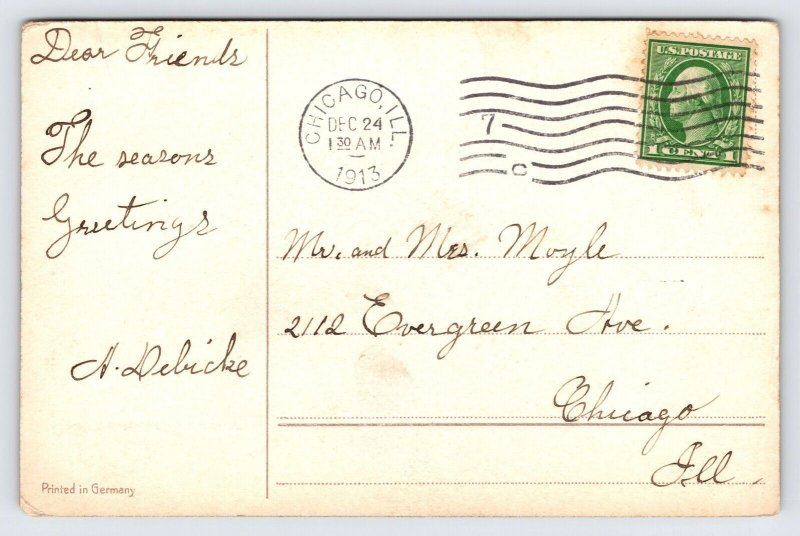 Dear Friends
The seasons
Greetings
A. Debicke
Printed in Germany
CHICAGO, ILL.
DEC 24
1 30 AM
1913
7
C
U.S. POSTAGE
1 CENT 1
Mr. and Mrs. Moyle
2112 Evergreen Ave.
Chicago
Ill.